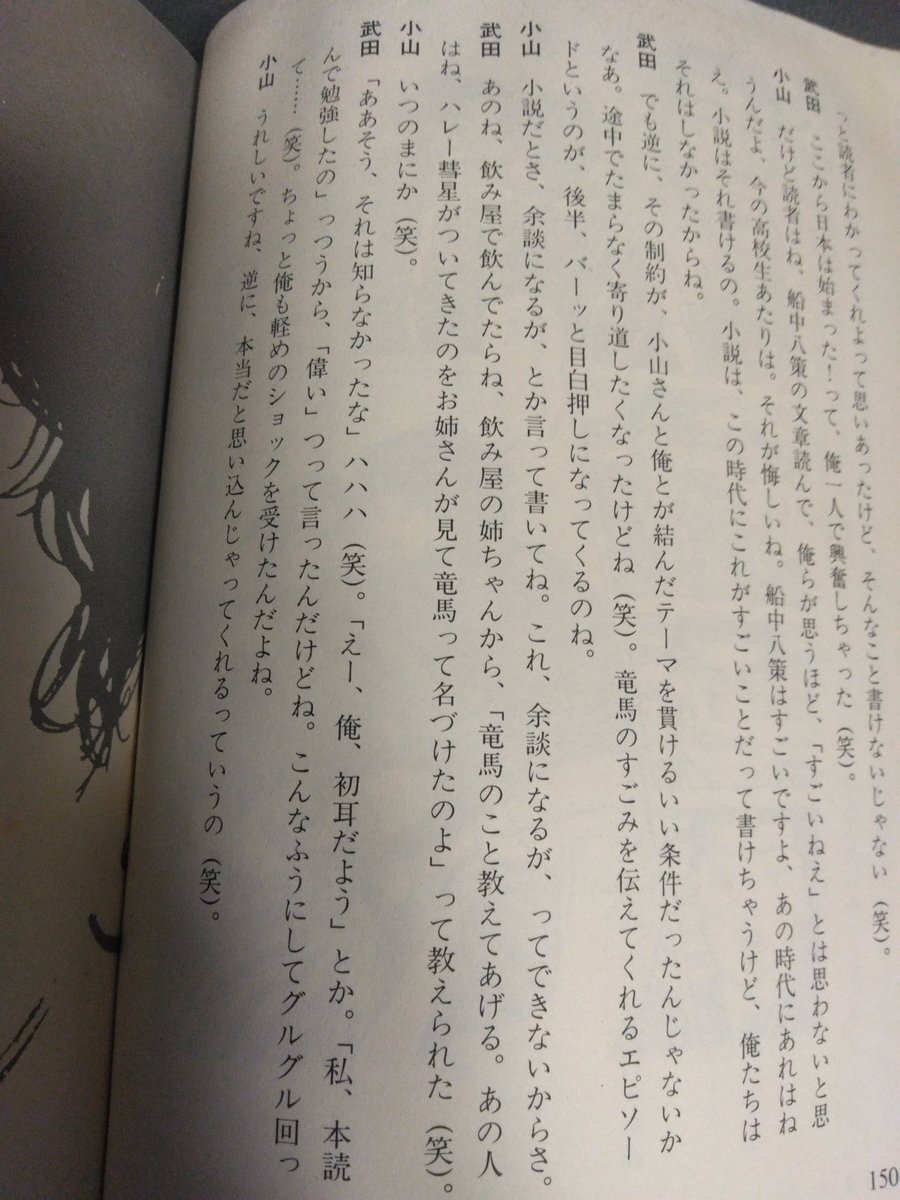 っと読者にわかってくれよって思いあったけど、そんなこと書けないじゃない（笑）。
武田　ここから日本は始まった！って、俺一人で興奮しちゃった（笑）。
小山　だけど読者はね、船中八策の文章読んで、俺らが思うほど、「すごいねえ」とは思わないと思
うんだよ、今の高校生あたりは。それが悔しいね。船中八策はすごいですよ、あの時代にあれはね
え。小説はそれ書けるの。小説は、この時代にこれがすごいことだって書けちゃうけど、俺たちは
それはしなかったからね。
武田　でも逆に、その制約が、小山さんと俺とが結んだテーマを貫けるいい条件だったんじゃないか
なあ。途中でたまらなく寄り道したくなったけどね（笑）。竜馬のすごみを伝えてくれるエピソー
ドというのが、後半、バーッと目白押しになってくるのね。
小山　小説だとさ、余談になるが、とか言って書いてね。これ、余談になるが、ってできないからさ。
武田　あのね、飲み屋で飲んでたらね、飲み屋の姉ちゃんから、「竜馬のこと教えてあげる。あの人
はね、ハレー彗星がついてきたのをお姉さんが見て竜馬って名づけたのよ」って教えられた（笑）。
小山　いつのまにか（笑）。
武田　「ああそう、それは知らなかったな」ハハハ（笑）。「えー、俺、初耳だよう」とか。「私、本読
んで勉強したの」っつうから、「偉い」つって言ったんだけどね。こんなふうにしてグルグル回っ
て……（笑）。ちょっと俺も軽めのショックを受けたんだよね。
小山　うれしいですね、逆に、本当だと思い込んじゃってくれるっていうの（笑）。
150